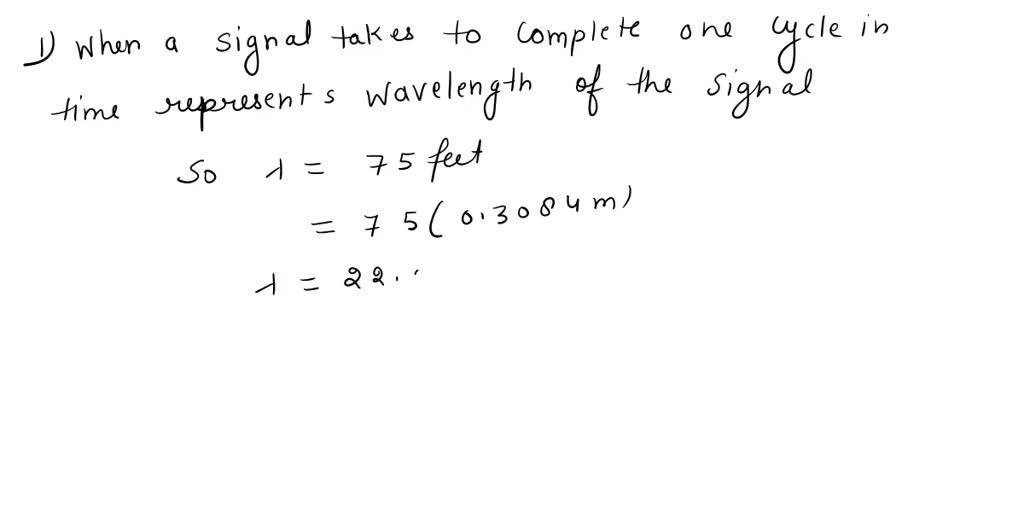 1) When a signal takes to complete one cycle in
time represents wavelength of the signal
So λ = 75 feet
= 75 (0.3084 m)
λ = 22.